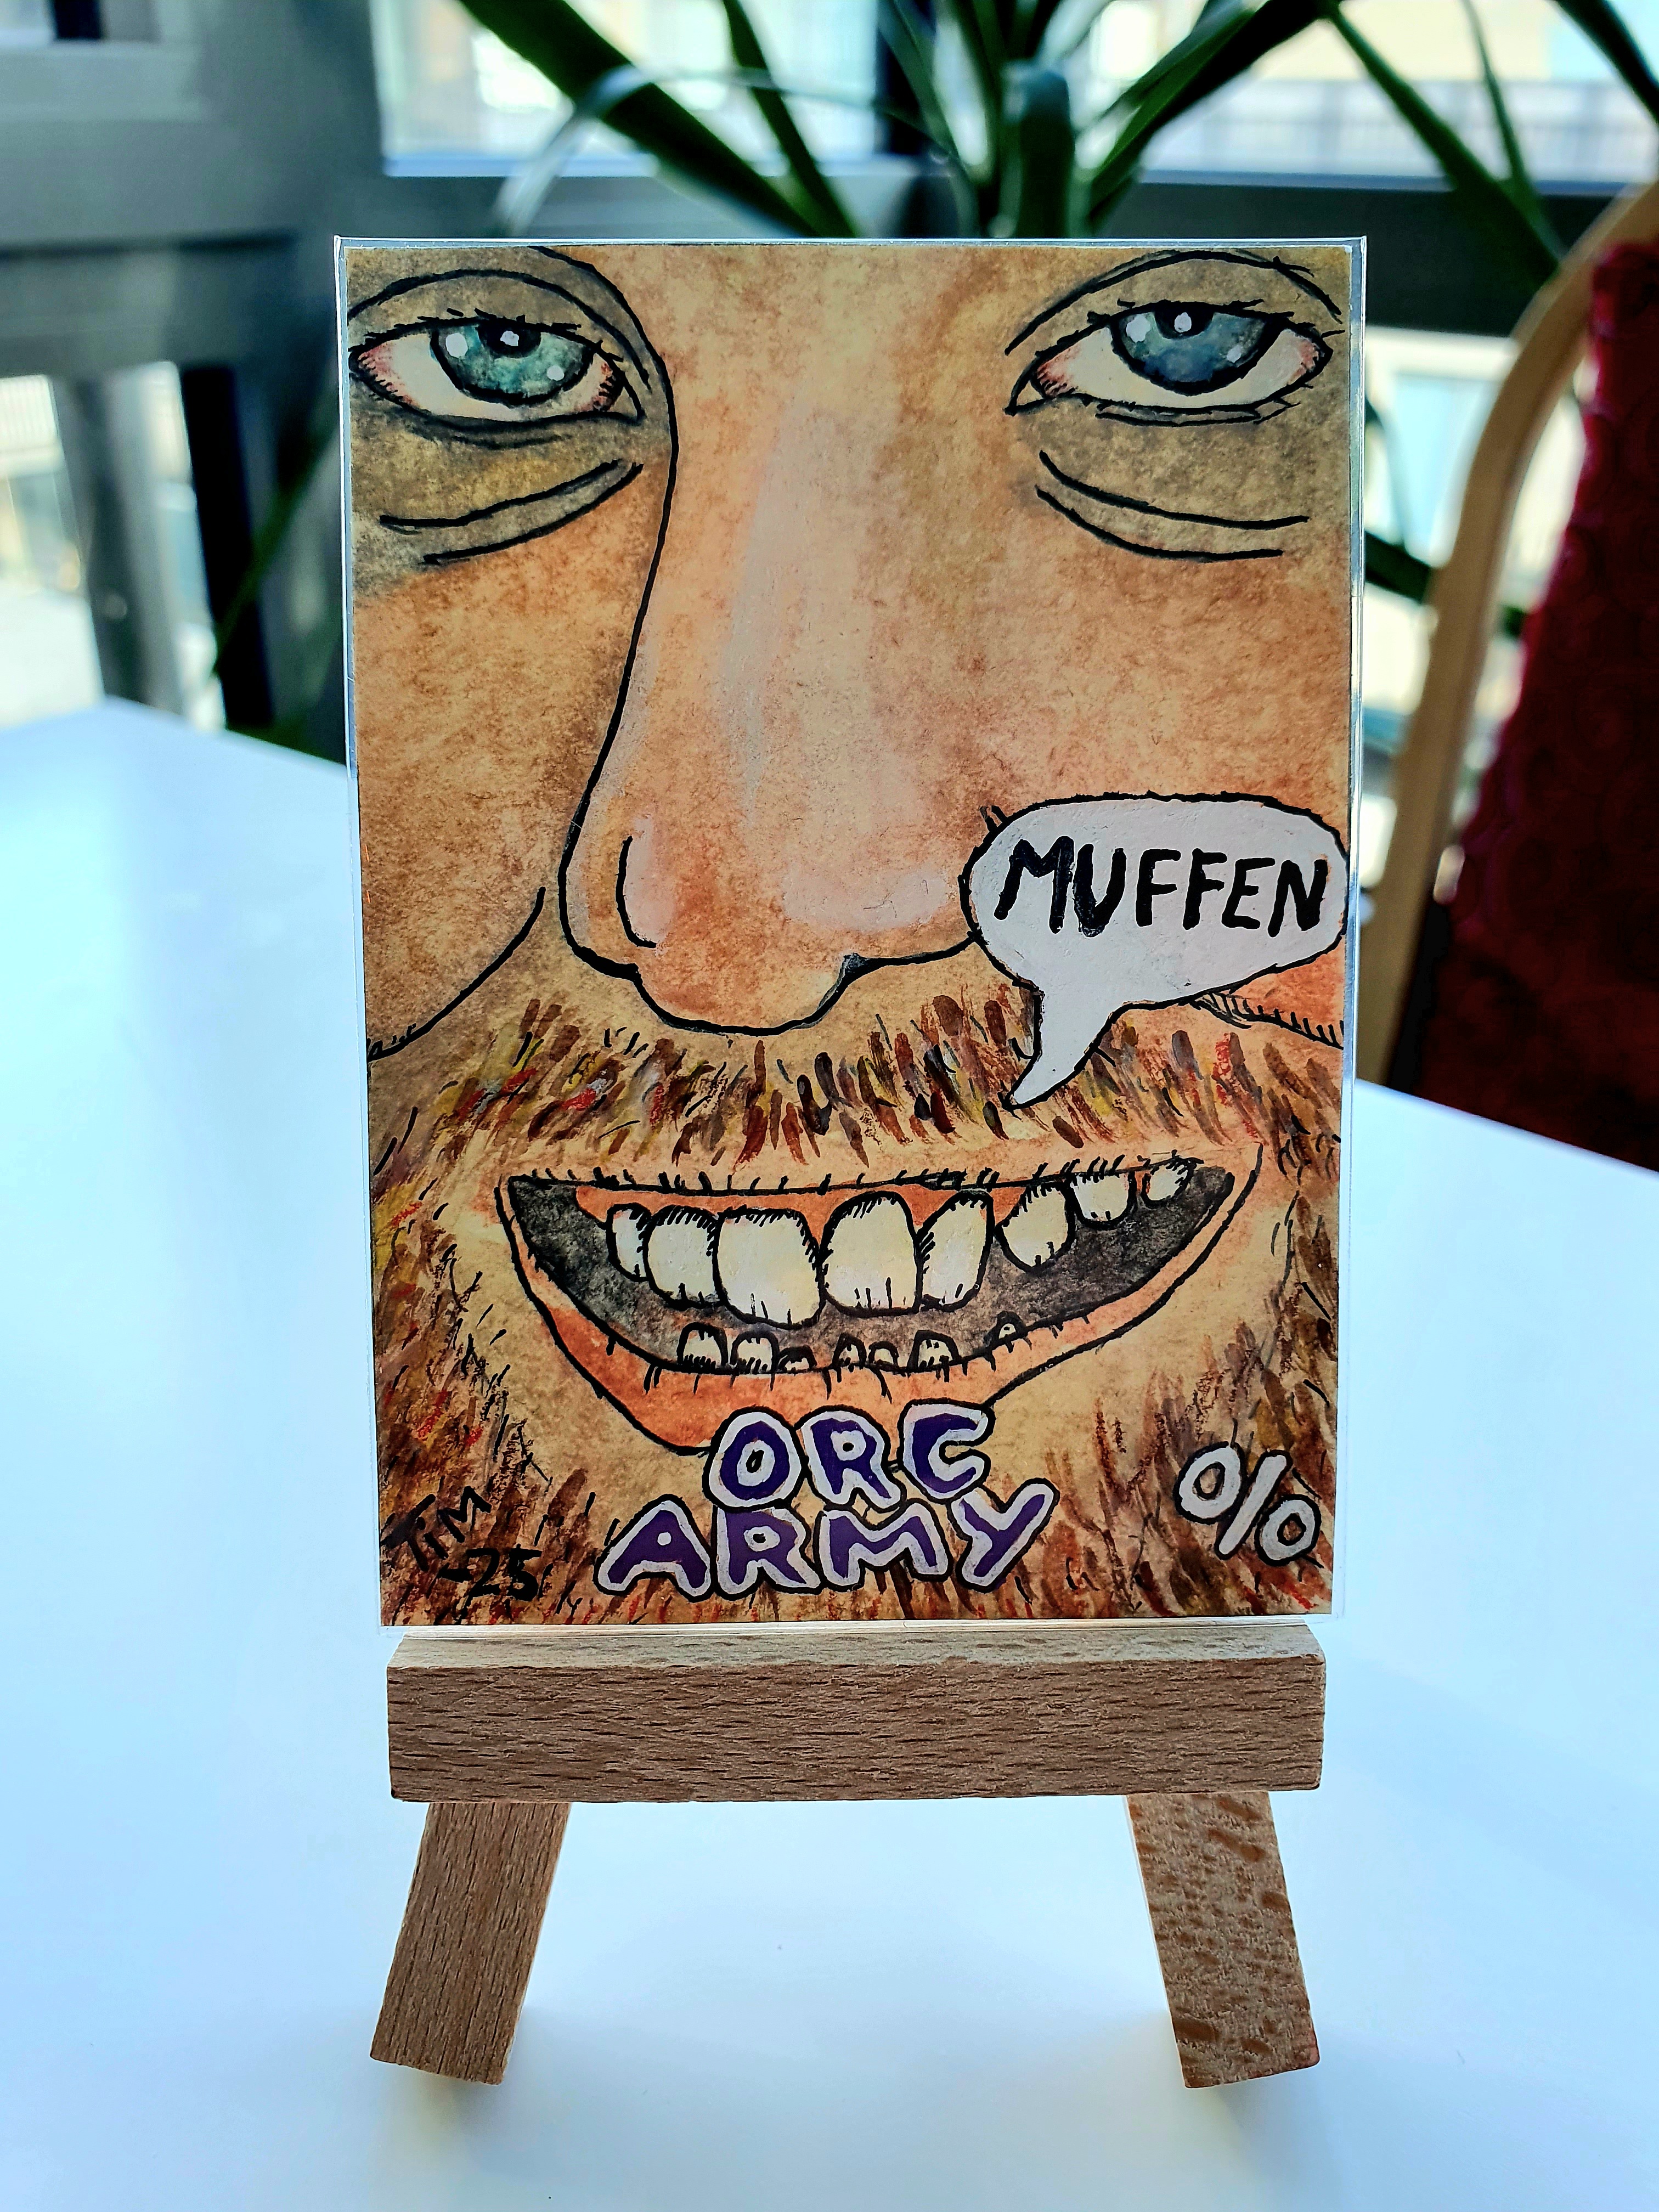 MUFFEN
ORC
ARMY
0/0
TIM
-25